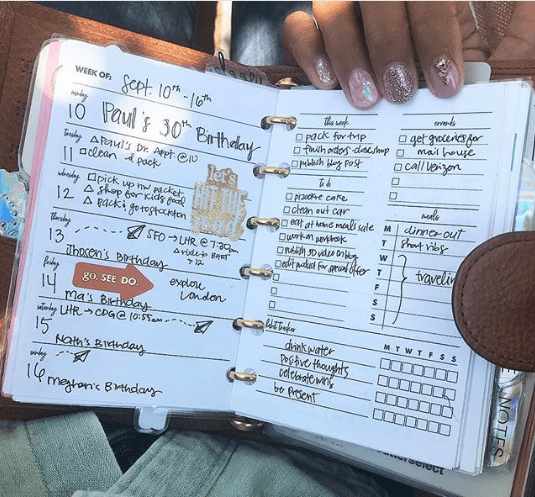 WEEK OF: Sept. 10th - 16th
monday
10 Paul's 30th Birthday
tuesday
11 Paul's Dr. Appt. @10
clean & pack
wednesday
12 pick up nw packet
shop for kids food
pack; go to stockton
let's
HIT THE
thursday
13 SFO → LHR @
Birthday
friday
14 go. SEE DO.
explore
London
Ma's Birthday
saturday
15 LHR → CDG @ 10:55am
Nath's Birthday
sunday
16 meghan's Birthday
this week
pack for trip
finish orders - close shop
publish blog post
to do
practice cake
clean out car
eat at home meals sale
work on workbook
publish 3D video on blog
for special offer
habit tracker
drink water
positive thoughts
celebrate wins
be present
errands
get groceries for
mai house
call verizon
meals
M dinner out
T short ribs
W
T traveling
F
S
S
M T W T F S S
NOTES